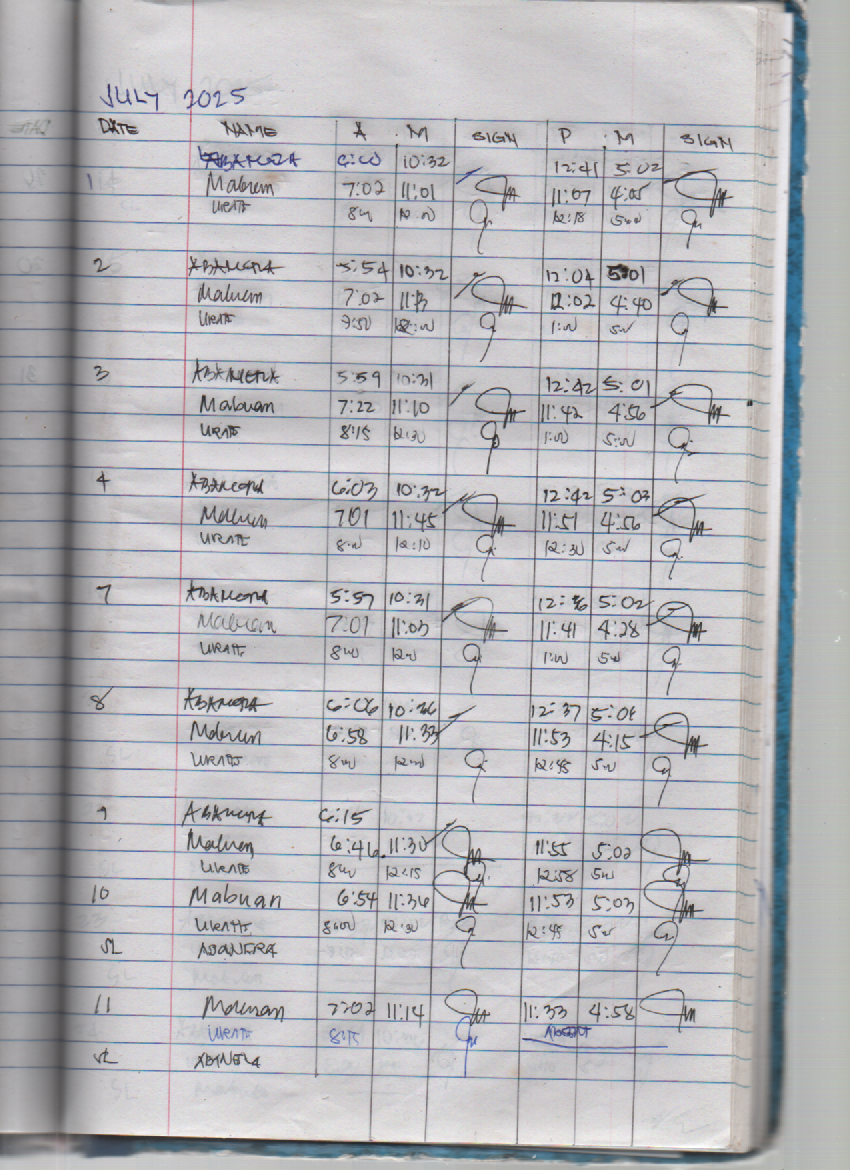 JULY 2025
DATE NAME A M SIGN P M SIGN
ABANERA 6:00 10:32 12:41 5:02
1 Mabuan 7:02 11:01 11:07 4:05
URATE 8:00 12:00 12:18 5:00
2 ABANERA 5:54 10:32 12:04 5:01
Mabuan 7:02 12:02 4:40
URATE 12:00 1:00 5:00
3 ABANERA 5:59 10:31 12:42 5:01
Mabuan 7:22 11:10 11:42 4:56
URATE 8:15 12:30 1:00 5:00
4 ABANERA 6:03 10:32 12:42 5:03
Mabuan 701 11:45 11:51 4:56
URATE 8:00 12:10 12:30 500
7 ABANERA 5:57 10:31 12:36 5:02
Mabuan 7:01 11:03 11:41 4:28
URATE 800 1200 1:00 500
8 ABANERA 6:06 10:36 12:37
Mabuan 6:58 11:33 11:53 4:15
URATE 800 12:00 12:45 500
9 ABANERA 6:15
Mabuan 6:46 11:30 11:55 5:02
URATE 800 12:15 12:58 500
10 Mabuan 6:54 11:36 11:53 5:03
URATE 8:00 12:30 12:45 500
SL ABANERA
11 Mabuan 7:02 11:14 11:33 4:58
URATE 8:15 ABSENT
SL ABANERA